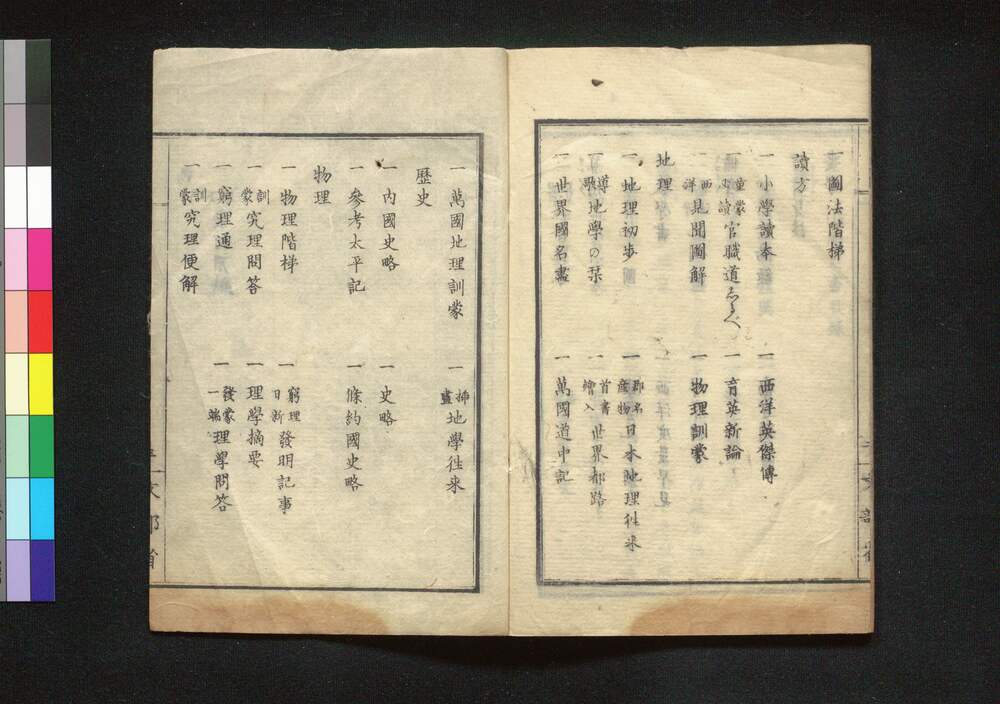 一國法階梯
讀方
一小學讀本 一西洋英傑傳
一童蒙必讀官職道志るべ 一育英新論
一西洋見聞圖解 一物理訓蒙
地理
一地理初步 一郡名産物日本地理往来
一導歌地學の栞 一首書繪入世界都路
一世界國名盡 一萬國道中記
一萬國地理訓蒙 一挿畫地學往来
歴史
一内國史略 一史略
一參考太平記 一條約國史略
物理
一物理階梯 一窮理日新發明記事
一訓蒙究理問答 一理學摘要
一窮理通 一發蒙一端理學問答
一訓蒙究理便解
文部省
文部省